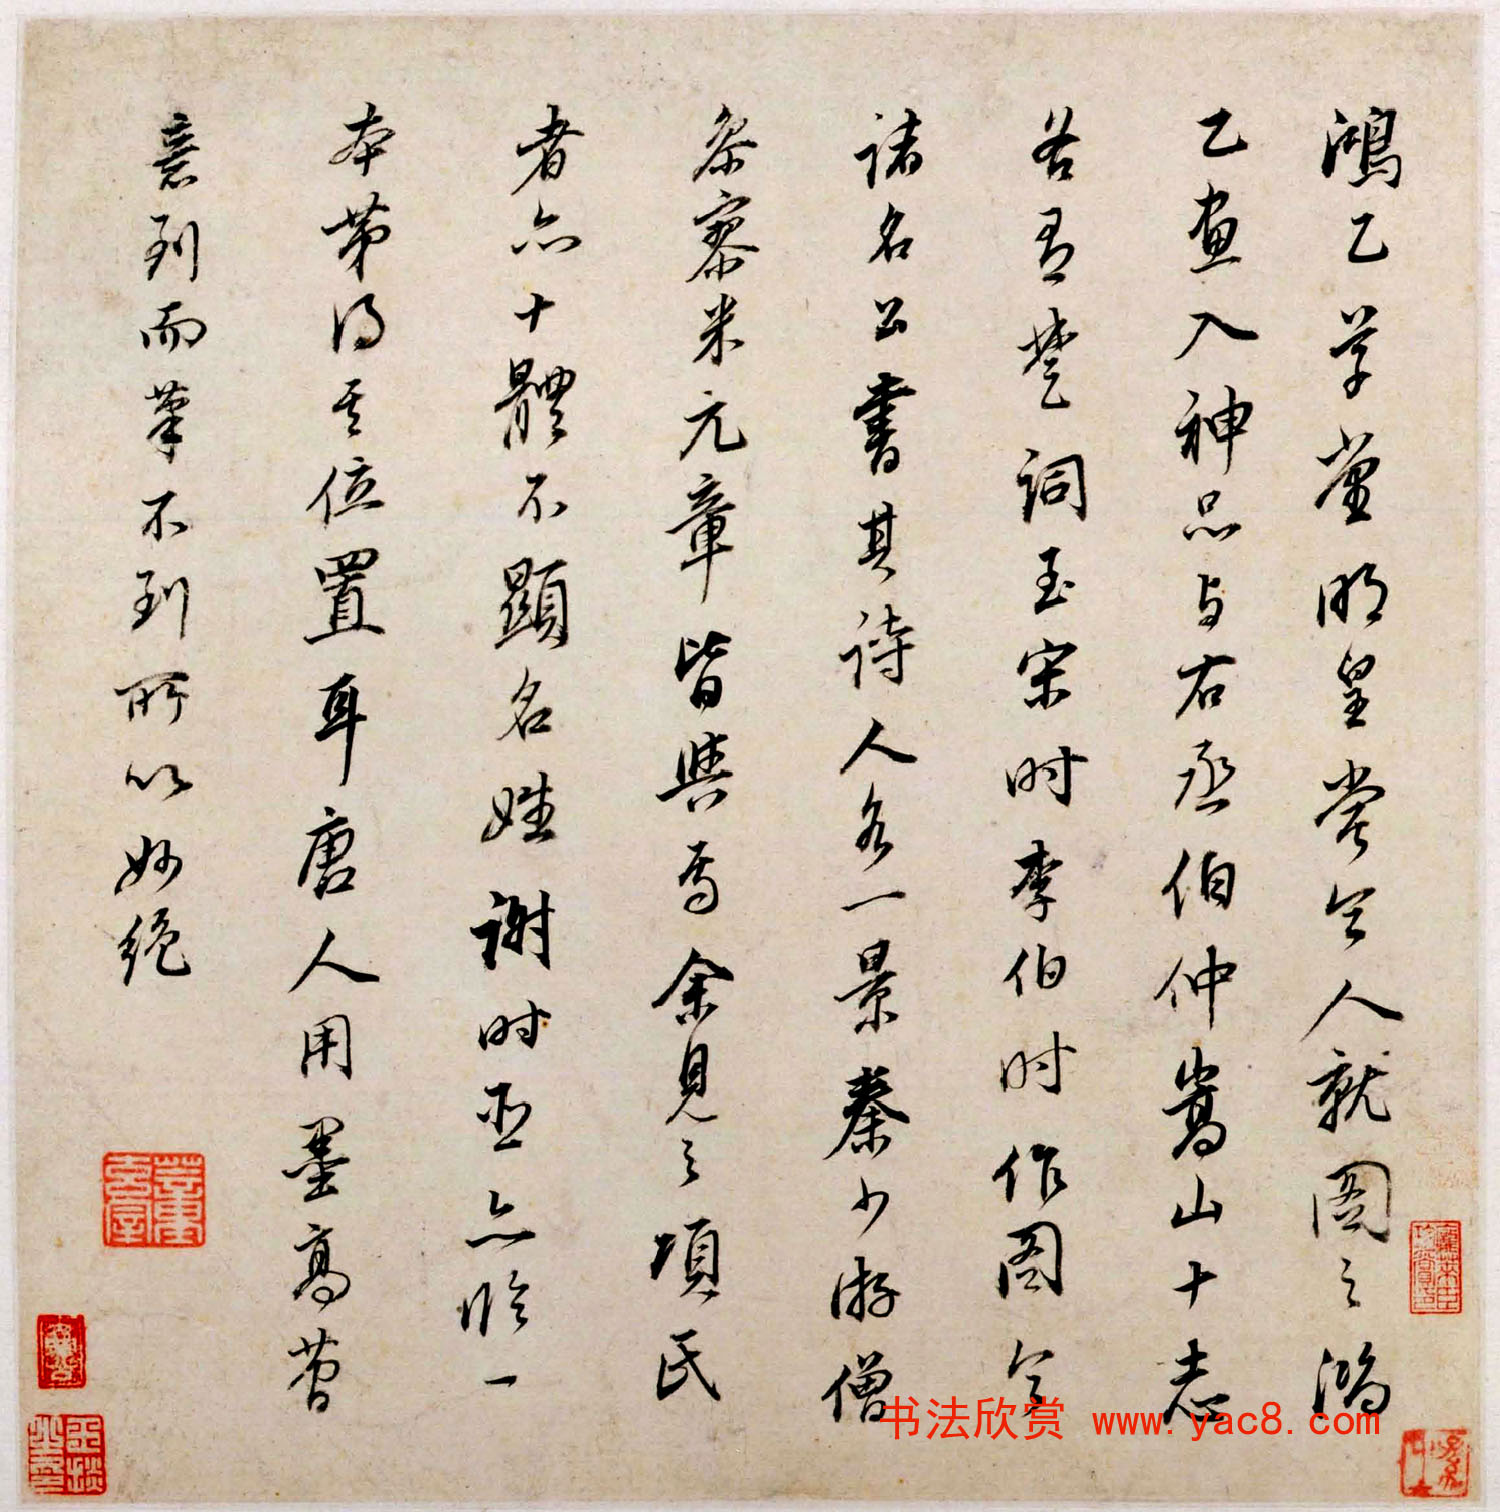 鴻乙草堂明皇嘗令人就圖之鴻
乙畫入神品与右丞伯仲嵩山十志
各有楚詞至宋时李伯时作图令
諸名公書其詩人各一景秦少游僧
參寥米元章皆與焉余見之項氏
者亦十體不顯名姓謝时臣亦臨一
本苐得其位置耳唐人用墨高簡
意到而筆不到所以妙絕
书法欣赏 www.yac8.com